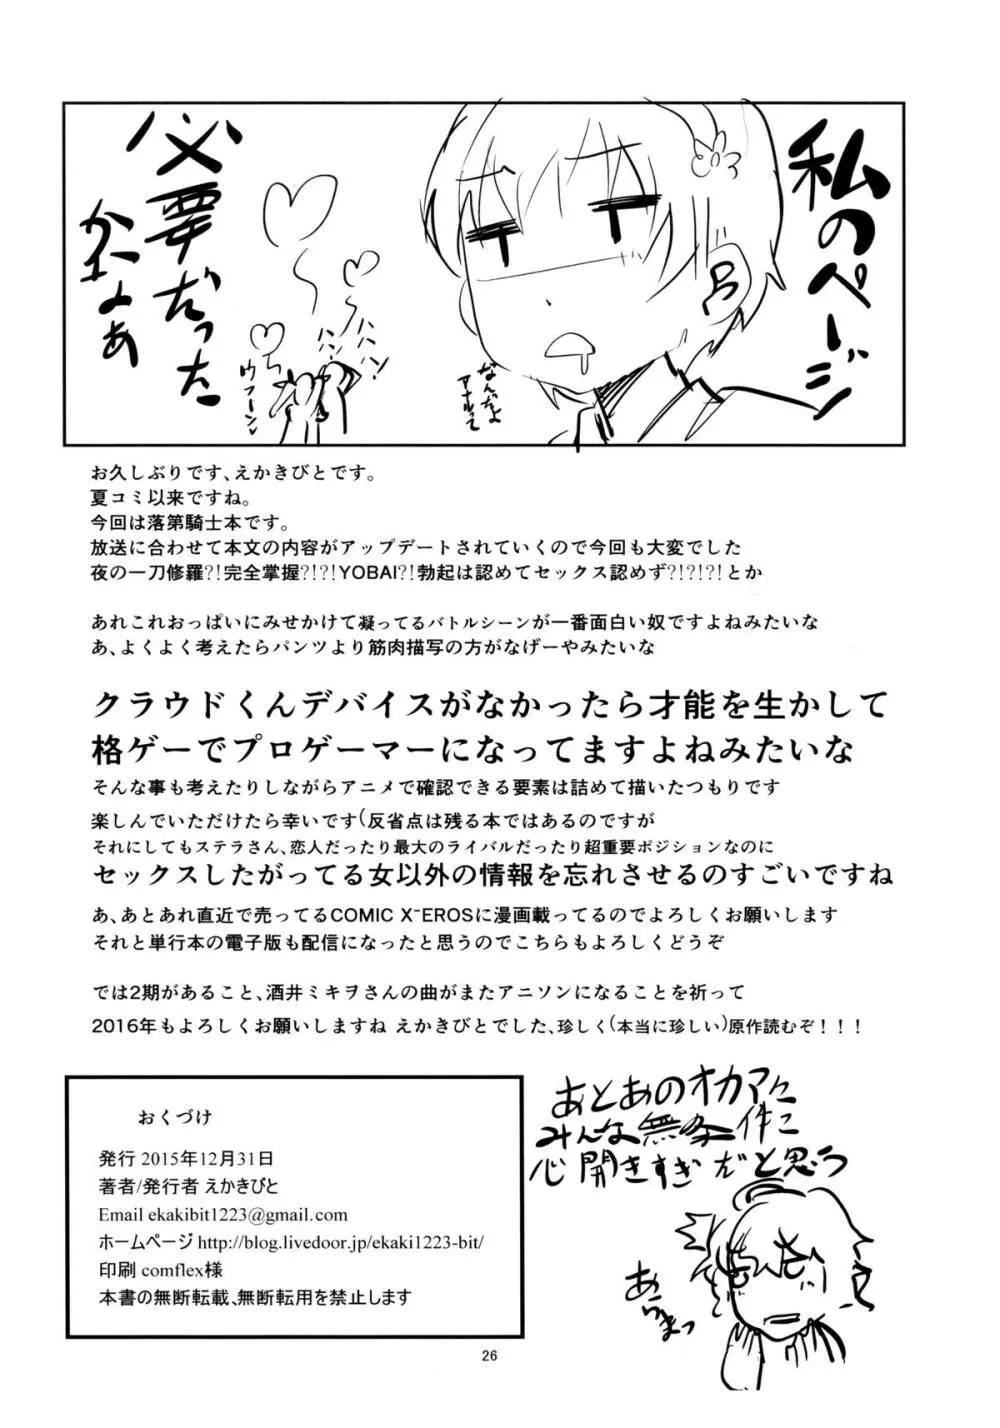 私のページ
必要だった
かなぁ
なんだよ
アナルって
ウフーン
お久しぶりです、えかきびとです。
夏コミ以来ですね。
今回は落第騎士本です。
放送に合わせて本文の内容がアップデートされていくので今回も大変でした
夜の一刀修羅?!完全掌握?!?!YOBAI?!勃起は認めてセックス認めず?!?!?!とか
あれこれおっぱいにみせかけて凝ってるバトルシーンが一番面白い奴ですよねみたいな
あ、よくよく考えたらパンツより筋肉描写の方がなげーやみたいな
クラウドくんデバイスがなかったら才能を生かして
格ゲーでプロゲーマーになってますよねみたいな
そんな事も考えたりしながらアニメで確認できる要素は詰めて描いたつもりです
楽しんでいただけたら幸いです(反省点は残る本ではあるのですが
それにしてもステラさん、恋人だったり最大のライバルだったり超重要ポジションなのに
セックスしたがってる女以外の情報を忘れさせるのすごいですね
あ、あとあれ直近で売ってるCOMIC X-EROSに漫画載ってるのでよろしくお願いします
それと単行本の電子版も配信になったと思うのでこちらもよろしくどうぞ
では2期があること、酒井ミキヲさんの曲がまたアニソンになることを祈って
2016年もよろしくお願いしますね えかきびとでした、珍しく(本当に珍しい)原作読むぞ!!!
おくづけ
発行 2015年12月31日
著者/発行者 えかきびと
Email ekakibit1223@gmail.com
ホームページ http://blog.livedoor.jp/ekaki1223-bit/
印刷 comflex様
本書の無断転載、無断転用を禁止します
あとあのオカマに
みんな無条件に
心開きすぎだと思う
あらまっ
26